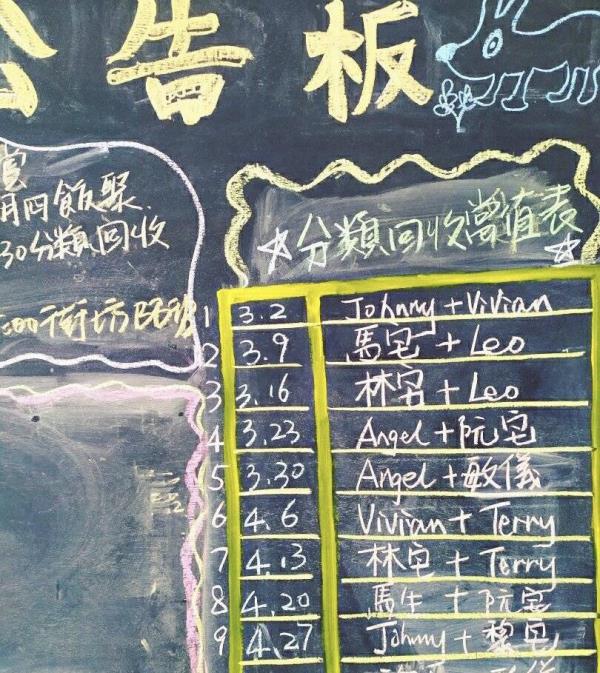 公告板
月四飯聚
30分類回收
:00街坊
☆分類回收當值表☆
1 3.2 Johnny + Vivian
2 3.9 馬宅 + Leo
3 3.16 林宅 + Leo
4 3.23 Angel + 阮宅
5 3.30 Angel + 敏儀
6 4.6 Vivian + Terry
7 4.13 林宅 + Terry
8 4.20 馬生 + 阮宅
9 4.27 Johnny + 黎宅